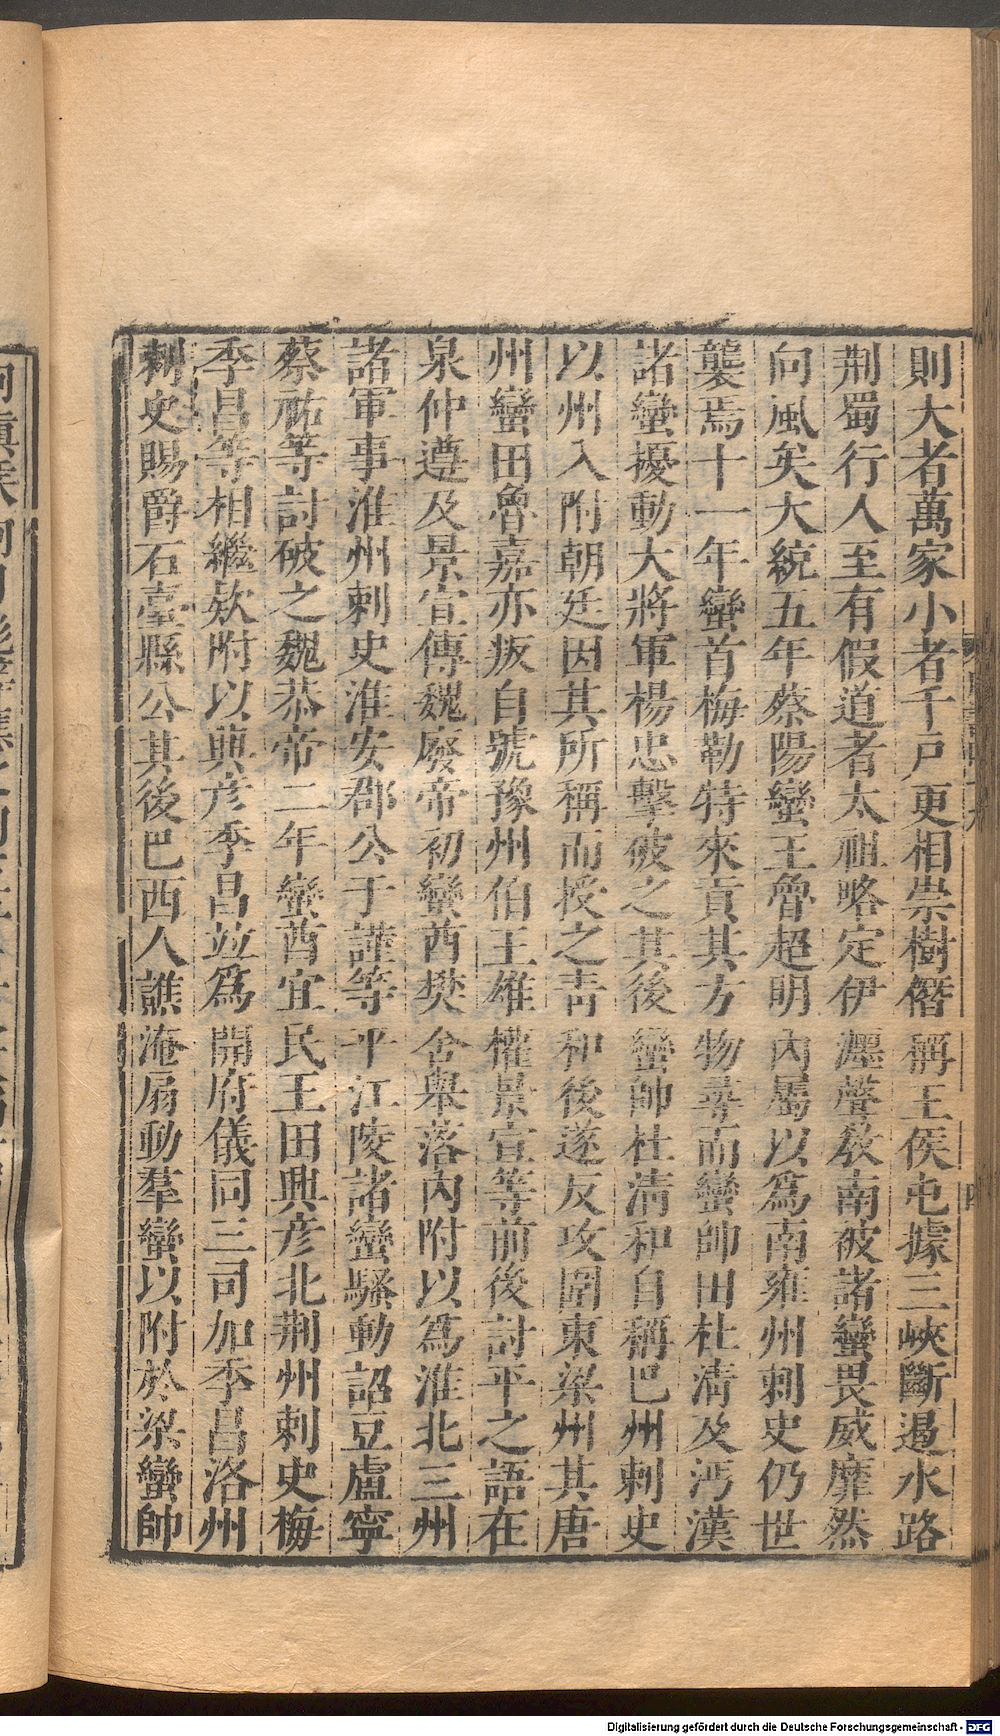 則大者萬家小者千戸更相崇樹僭稱王侯屯據三峽斷遏水路
荆蜀行人至有假道者太祖略定伊瀍聲敎南被諸蠻畏威靡然
向風矣大統五年蔡陽蠻王魯超明內屬以爲南雍州刺史仍世
襲焉十一年蠻首梅勒特來貢其方物尋而蠻帥田杜淸及沔漢
諸蠻擾動大將軍楊忠擊破之其後蠻帥杜淸和自稱巴州刺史
以州入附朝廷因其所稱而授之靑和後遂反攻圍東梁州其唐
州蠻田魯嘉亦叛自號豫州伯王雄權景宣等前後討平之語在
泉仲遵及景宣傳魏廢帝初蠻酋樊舍舉落內附以爲淮北三州
諸軍事淮州刺史淮安郡公于謹等平江陵諸蠻騷動詔豆盧寧
蔡祐等討破之魏恭帝二年蠻酋宜民王田興彦北荆州刺史梅
季昌等相繼欵附以興彦季昌並爲開府儀同三司加季昌洛州
刺史賜爵石臺縣公其後巴西人譙淹扇動羣蠻以附於梁蠻帥
Digitalisierung gefördert durch die Deutsche Forschungsgemeinschaft - DFG